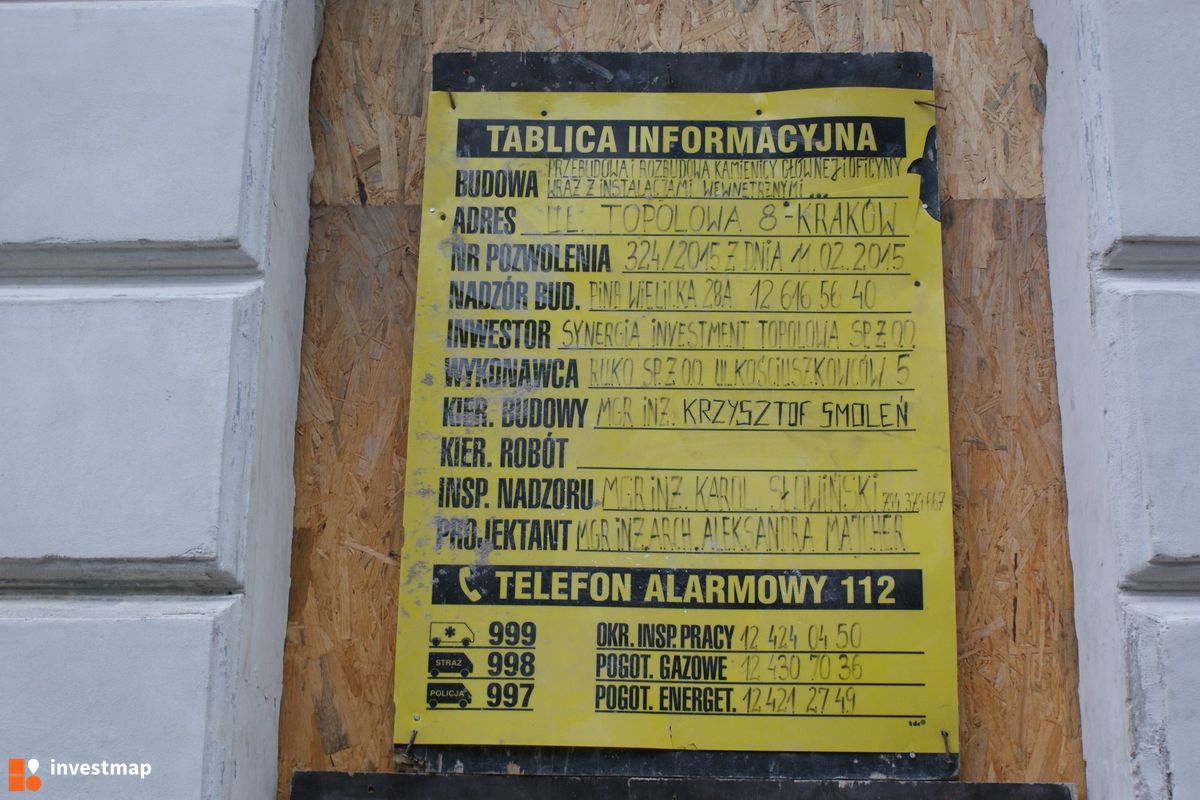 TABLICA INFORMACYJNA
BUDOWA PRZEBUDOWA I ROZBUDOWA KAMIENICY GŁÓWNEJ I OFICYNY
WRAZ Z INSTALACJAMI WEWNĘTRZNYMI...
ADRES UL. TOPOLOWA 8-KRAKÓW
NR POZWOLENIA 324/2015 Z DNIA 11.02.2015
NADZÓR BUD. PINB WIELICKA 28A 12 616 56 40
INWESTOR SYNERGIA INVESTMENT TOPOLOWA SP. Z O.O.
WYKONAWCA RUKO SP. Z O.O. UL. KOŚCIUSZKOWCÓW 5
KIER. BUDOWY MGR INŻ. KRZYSZTOF SMOLEŃ
KIER. ROBÓT
INSP. NADZORU MGR INŻ. KAROL SŁOWIŃSKI
PROJEKTANT MGR INŻ. ARCH. ALEKSANDRA MATCHER
TELEFON ALARMOWY 112
999 OKR. INSP. PRACY 12 424 04 50
STRAŻ 998 POGOT. GAZOWE 12 430 70 36
POLICJA 997 POGOT. ENERGET. 12 421 27 49
investmap